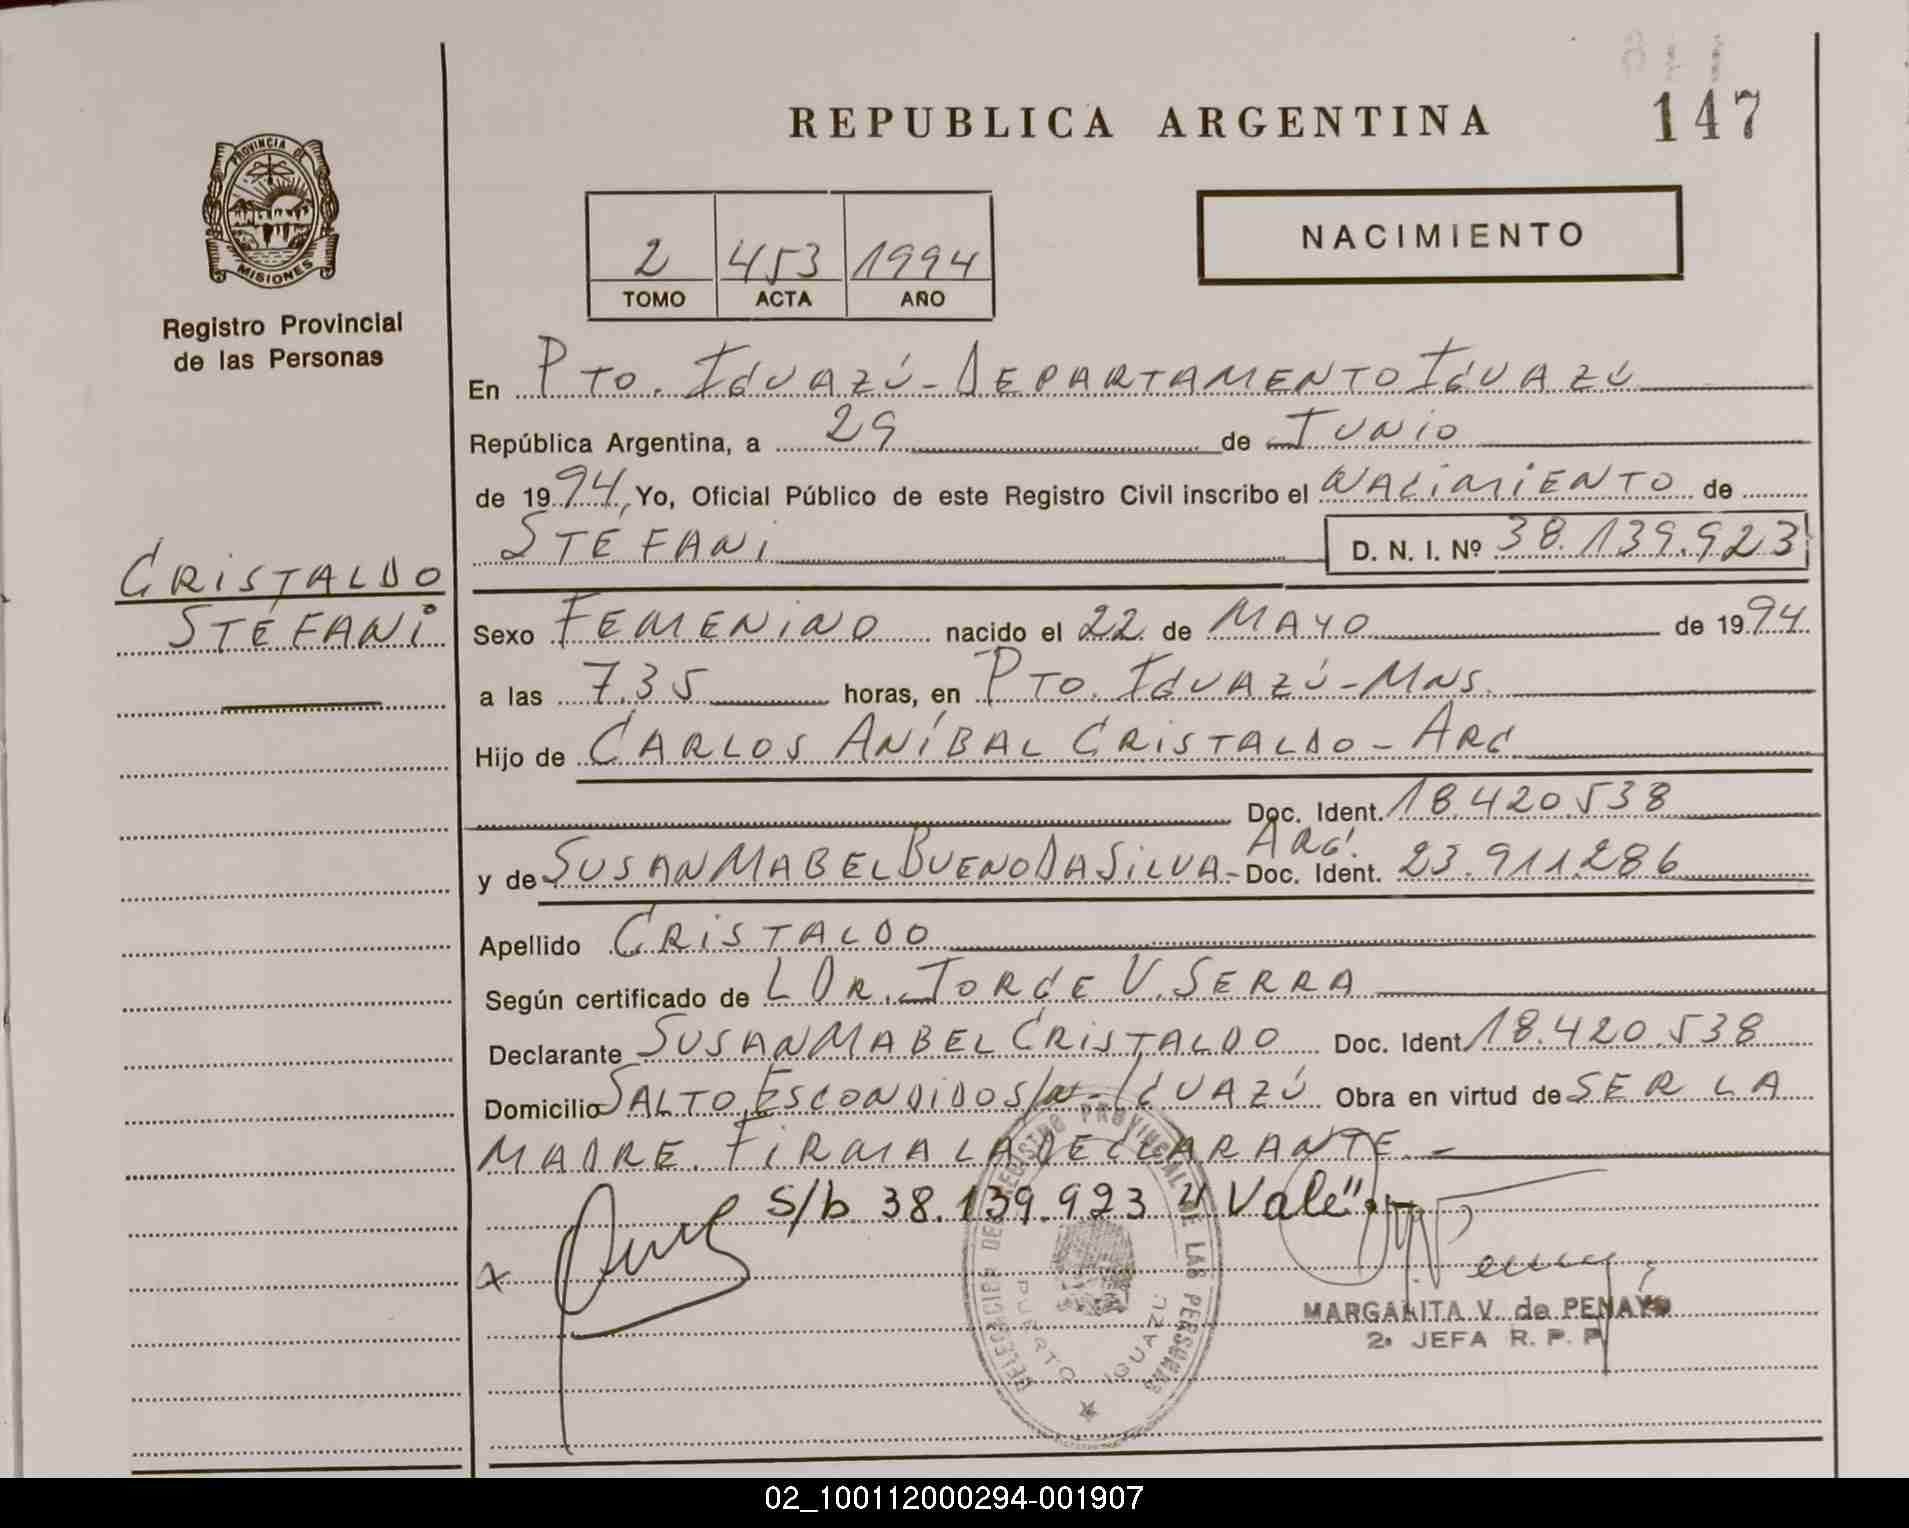 REPUBLICA ARGENTINA
147
PROVINCIA DE
MISIONES
Registro Provincial
de las Personas
2 453 1994
TOMO ACTA AÑO
NACIMIENTO
En Pto. Iguazú - Departamento Iguazú
República Argentina, a 29 de Junio
de 1994, Yo, Oficial Público de este Registro Civil inscribo el Nacimiento de
Stéfani D. N. I. Nº 38.139.923
Cristaldo
Stéfani
Sexo Femenino nacido el 22 de Mayo de 1994
a las 7.35 horas, en Pto. Iguazú - Mns.
Hijo de Carlos Aníbal Cristaldo - Arg
Doc. Ident. 18.420.538
y de Susan Mabel Bueno Da Silva - Arg. Doc. Ident. 23.911.286
Apellido Cristaldo
Según certificado de L Dr. Jorge V. Serra
Declarante Susan Mabel Cristaldo Doc. Ident 18.420.538
Domicilio Salto Escondido s/n - Iguazú Obra en virtud de ser la
madre. Firma la declarante. -
s/b 38.139.923 "Vale". -
DELEGACION DEL REGISTRO PROVINCIAL DE LAS PERSONAS
PUERTO IGUAZU
MARGARITA V. de PENAYO
2ª JEFA R. P. P.
02_100112000294-001907